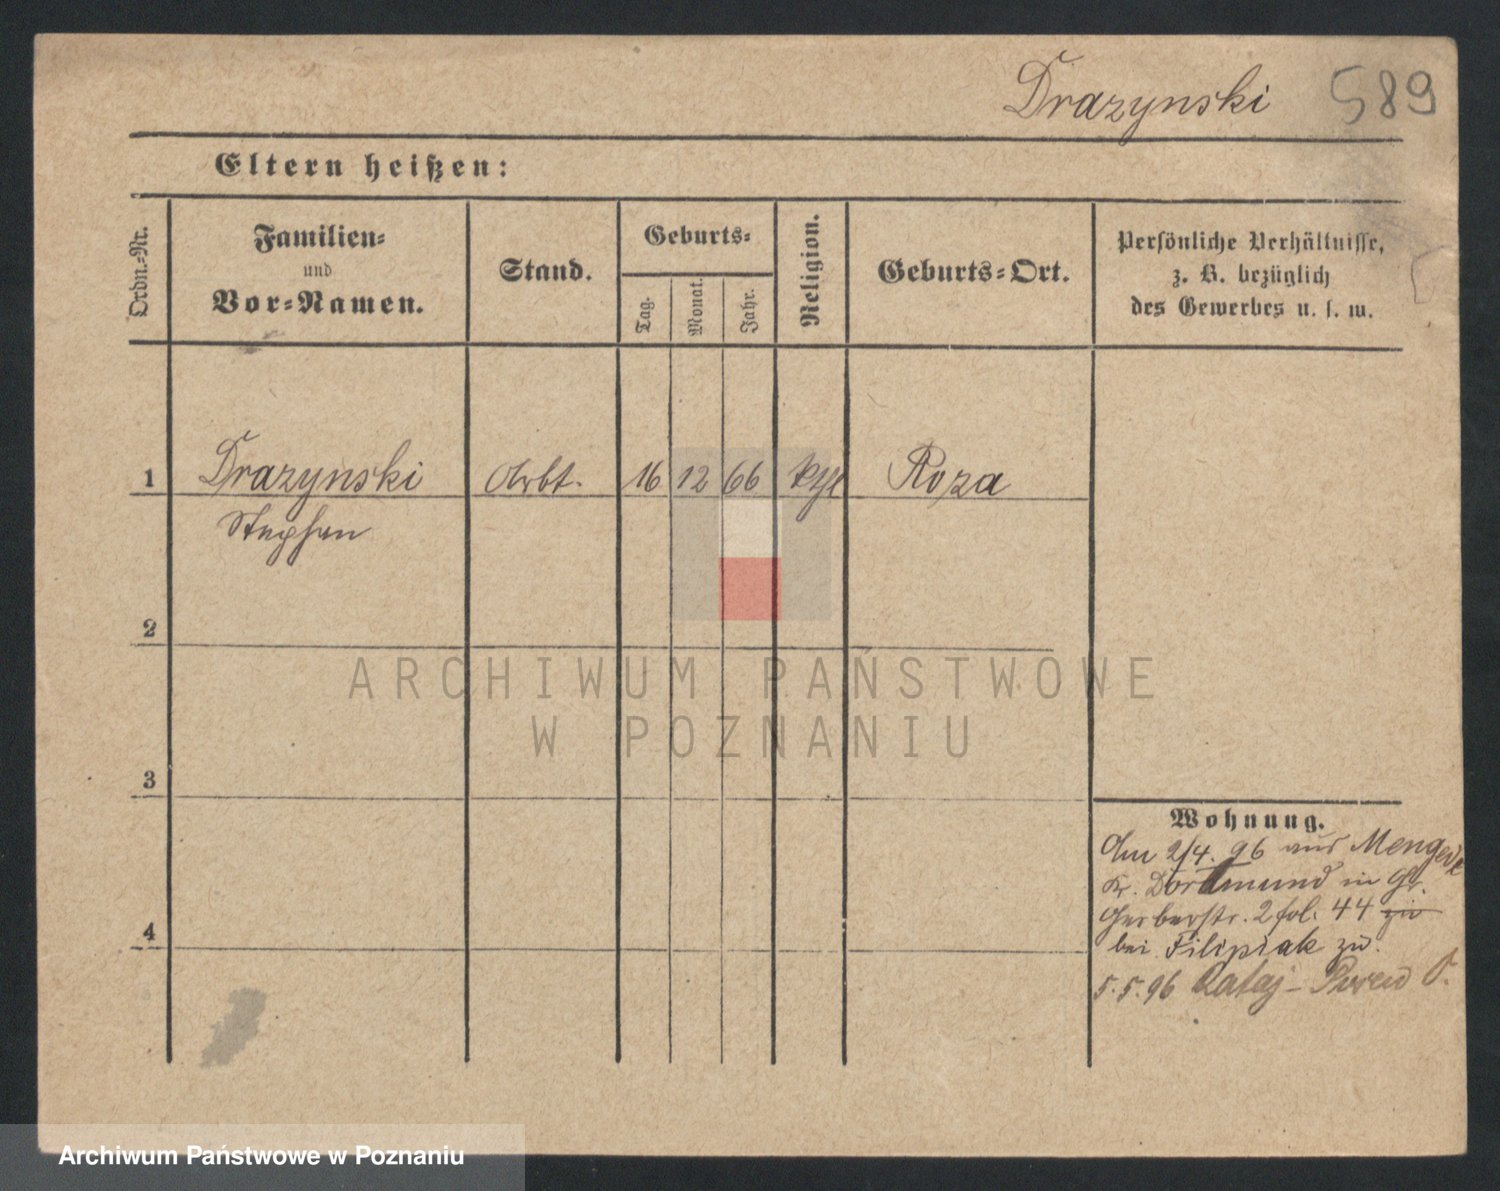 Drazynski 589
Eltern heißen:
Ordn.-Nr.
Familien-
und
Vor-Namen.
Stand.
Geburts-
Tag.
Monat.
Jahr.
Religion.
Geburts-Ort.
Persönliche Verhältnisse,
z. B. bezüglich
des Gewerbes u. s. w.
1 Drazynski Arbt. 16 12 66 Roza
Stephan
2
ARCHIWUM PAŃSTWOWE
W POZNANIU
3
4
Wohnung.
Am 2/4. 96 aus Mengede
Kr. Dortmund in Gr.
Gerberstr. 2 fol. 44 zu
bei Filipiak zu.
5.5.96 Rataj-
Archiwum Państwowe w Poznaniu